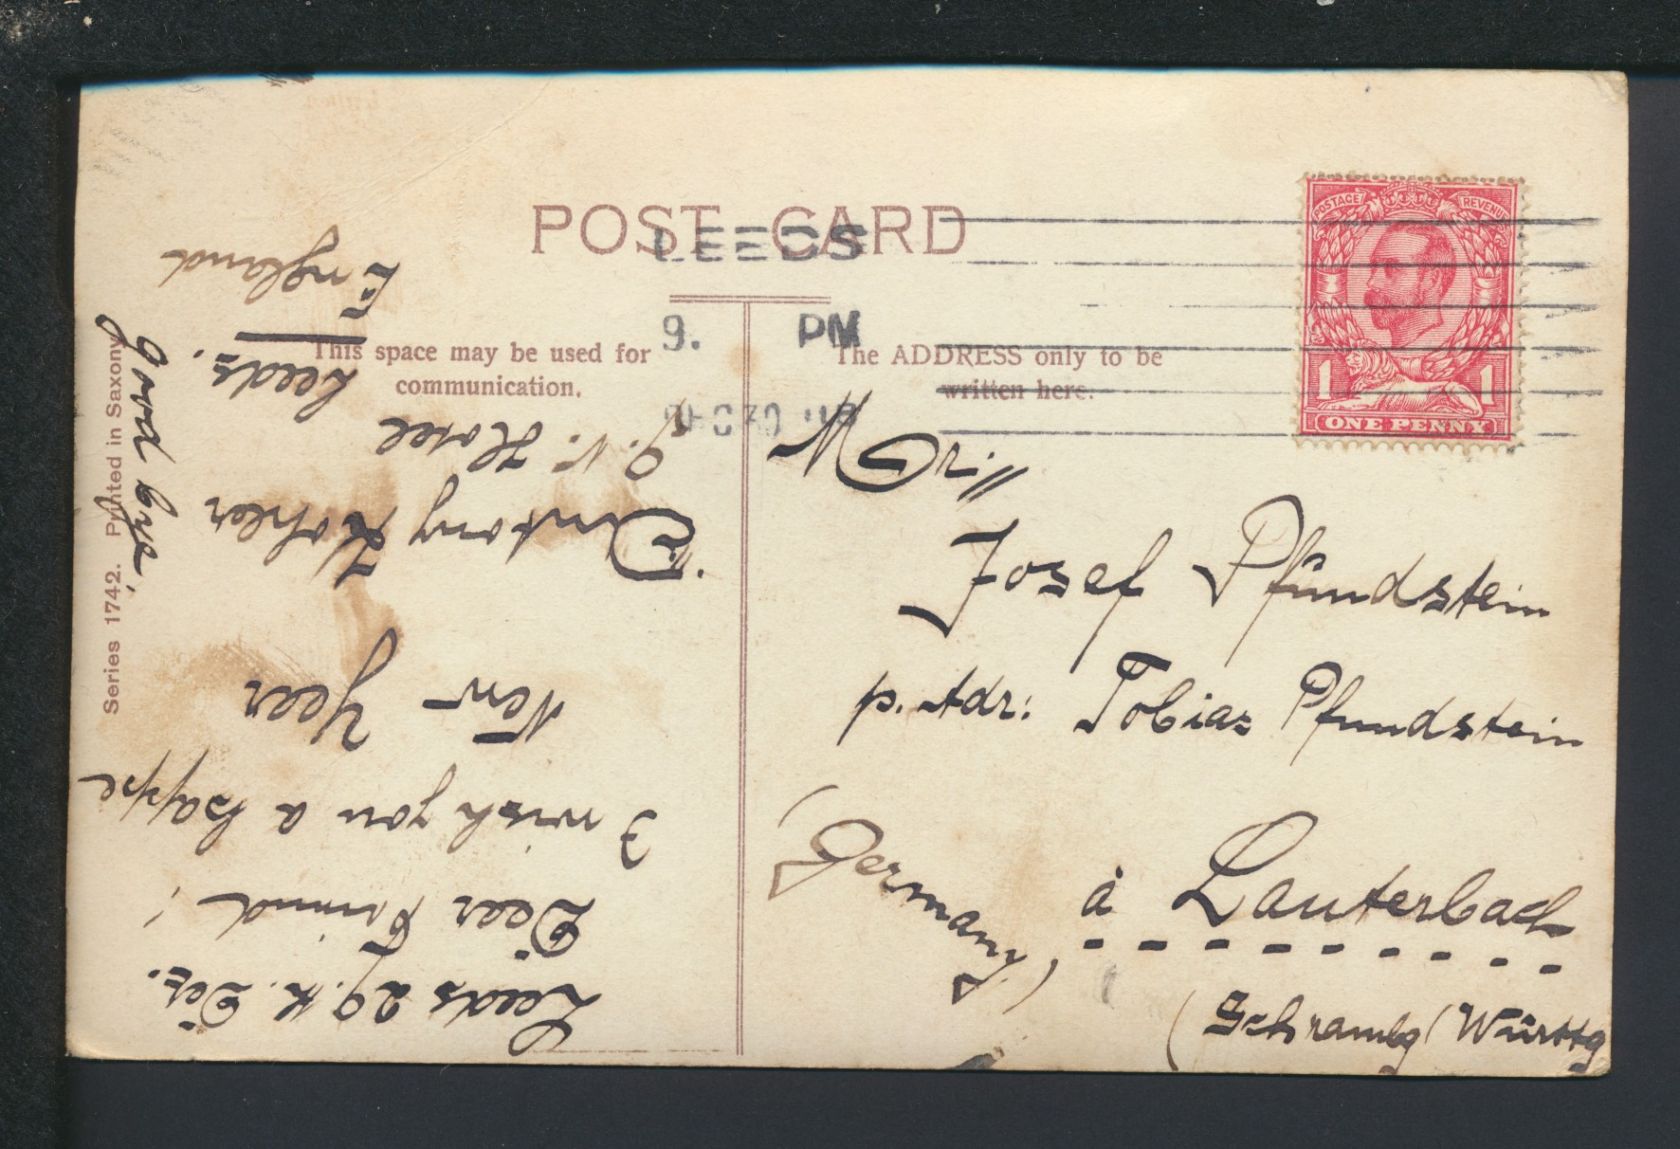 POST CARD
LEEDS
9. PM
This space may be used for
communication.
The ADDRESS only to be
written here.
POSTAGE REVENUE
1 1
ONE PENNY
Series 1742. Printed in Saxony.
Mr.
Josef Pfundstein
p. Adr: Tobias Pfundstein
à Lauterbach
(Schrambg) Württg
(Germany)
Leeds 29. th. Dez.
Dear Friend!
I wish you a happe
New Year
Antony Kohler
Q. V. Hotel
Leeds.
England
good bye,